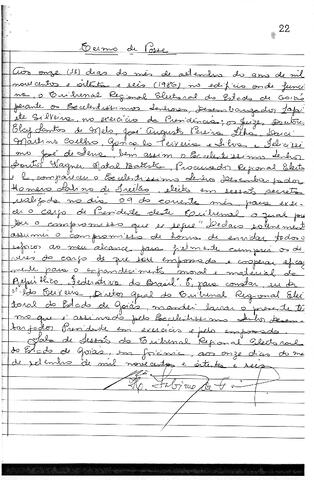 22
Termo de Posse
Aos onze (11) dias do mês de setembro do ano de mil
novecentos e oitenta e seis (1986), no edifício onde funcio
na o Tribunal Regional Eleitoral do Estado de Goiás
perante os Excelentíssimos Senhores, Desembargador
da Silveira, no exercício da Presidência; os Juízes, Doutores
Santos de Melo, José Augusto Pereira
Martins Coelho, Gonçalo Teixeira e Silva e
José de Sena, bem assim o Excelentíssimo Senhor
Doutor Wagner Natal Batista, Procurador Regional Eleito
ral, compareceu o Excelentíssimo Senhor Desembargador
Homero Sabino de Freitas, eleito em sessão secreta
realizada no dia 09 do corrente mês para exer
cer o cargo de Presidente deste Tribunal, o qual
o compromisso que se segue: "Declaro solenemente
assumir o compromisso de honra de envidar todos
esforços ao meu alcance, para fielmente cumprir os de
veres do cargo de que sou empossado e cooperar eficaz
mente para o engrandecimento moral e material da
República Federativa do Brasil". E, para constar,
Teixeira, Diretor Geral do Tribunal Regional Elei
toral do Estado de Goiás, mandei lavrar o presente ter
mo que é assinado pelo Excelentíssimo Senhor Desem
bargador Presidente em exercício e pelo empossado.
Sala de Sessões do Tribunal Regional Eleitoral
do Estado de Goiás, em Goiânia, aos onze dias do mês
de setembro de mil novecentos e oitenta e seis